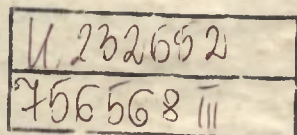 U. 232652
756568 III